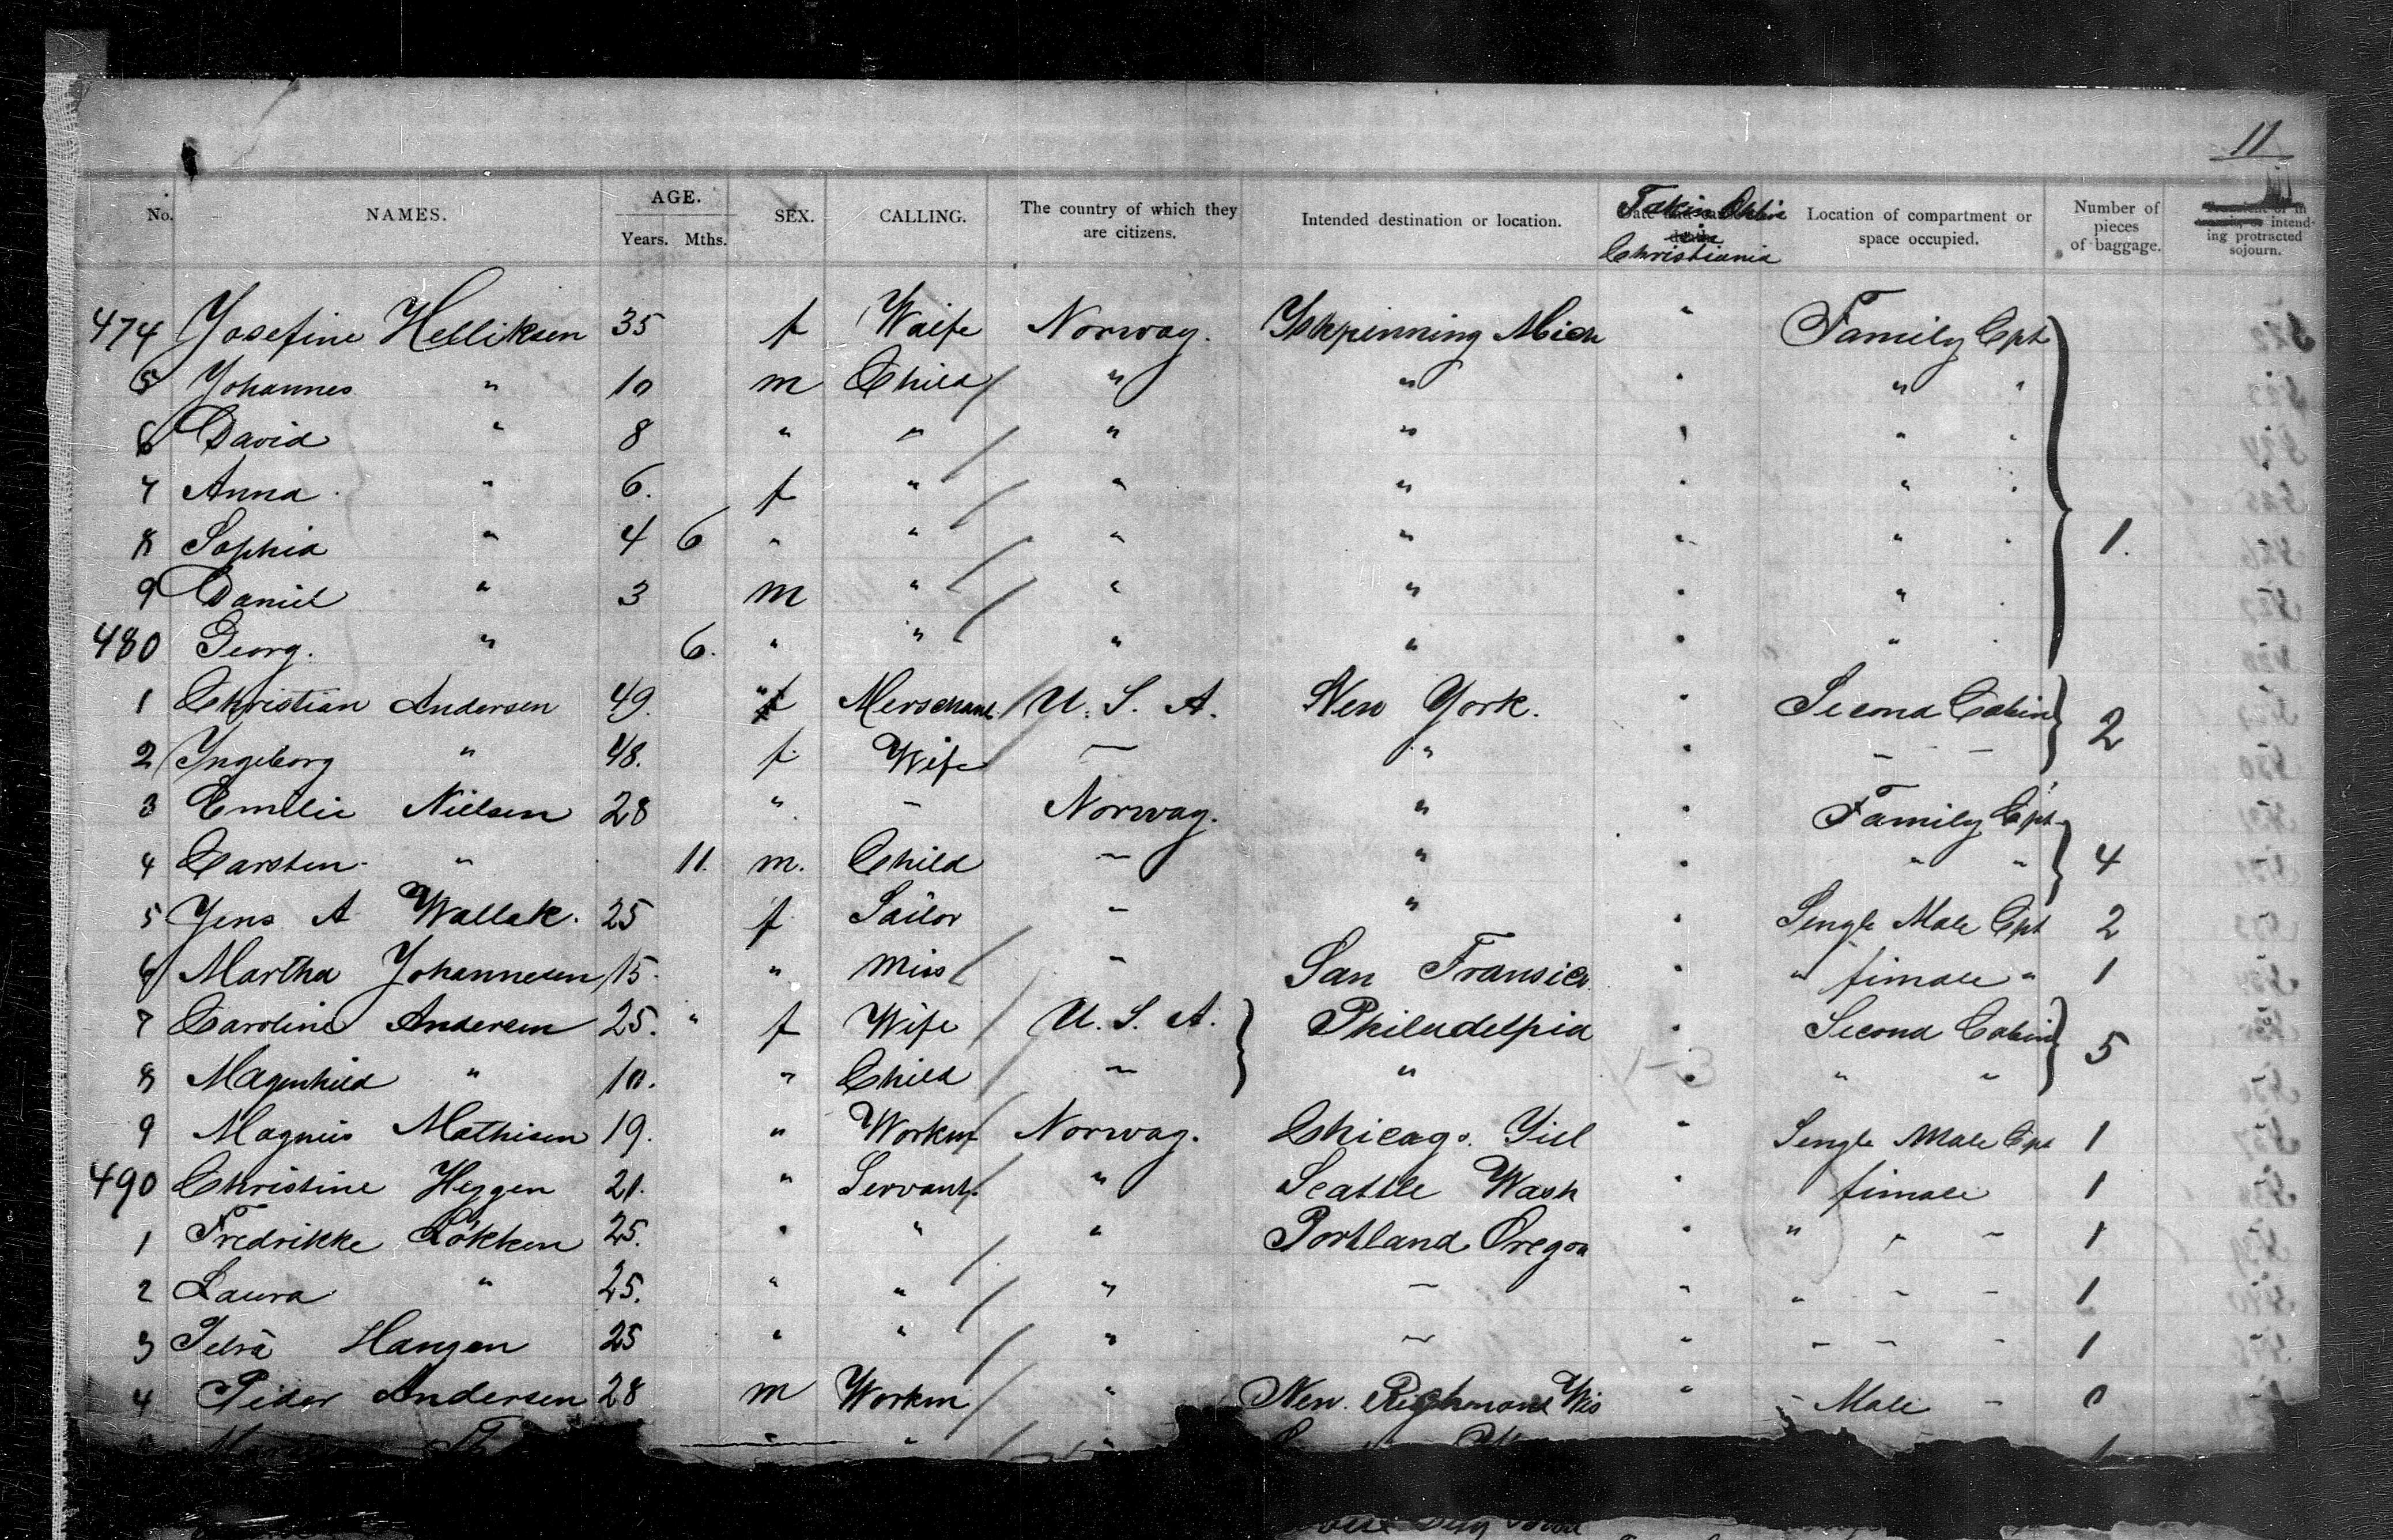 11
No. NAMES. AGE. Years. Mths. SEX. CALLING. The country of which they are citizens. Intended destination or location. Christiania Location of compartment or space occupied. Number of pieces of baggage. intending protracted sojourn.
474 Josefine Helliksen 35 f Waife Norway. Iskpenning Mich " Family Cpt
5 Johannes " 10 m Child " " " " "
6 David " 8 " " " " " " "
7 Anna " 6. f " " " " " "
8 Sophia " 4 6 " " " " " " " 1.
9 Daniel " 3 m " " " " " "
480 Georg. " 6. " " " " " " "
1 Christian Andersen 49. Merschant U. S. A. New York. " Second Cabin 2
2 Ingeborg " 48. f Wife — " " — — —
3 Emilie Nielsen 28 " — Norway. " " Family Cpt
4 Carsten " 11. m. Child — " " " " 4
5 Jens A Wallak. 25 f Sailor — " " Single Male Cpt 2
6 Martha Johannesen 15 " Miss — San Fransico " " fimale " 1
7 Caroline Andersen 25. " f Wife U. S. A. Philadelpia " Second Cabin 5
8 Magnhild " 10. " Child — " " " "
9 Magnus Mathisen 19. " Workm Norway. Chicago. Yill " Single Male Cpt 1
490 Christine Heggen 21. " Servant. " Seattle Wash " fimale 1
1 Fredrikke Lökken 25. " " " Portland Oregon " " " — 1
2 Laura " 25. " " " — " " — — 1
3 Petra Haugen 25 " " " — " — — — 1
4 Peder Andersen 28 m Workm " New. Righmond Wis " — Male —